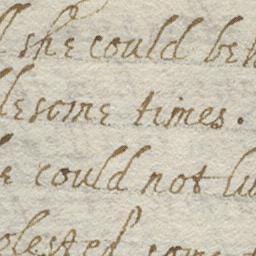 she could be
lesome times.
could not
olested some